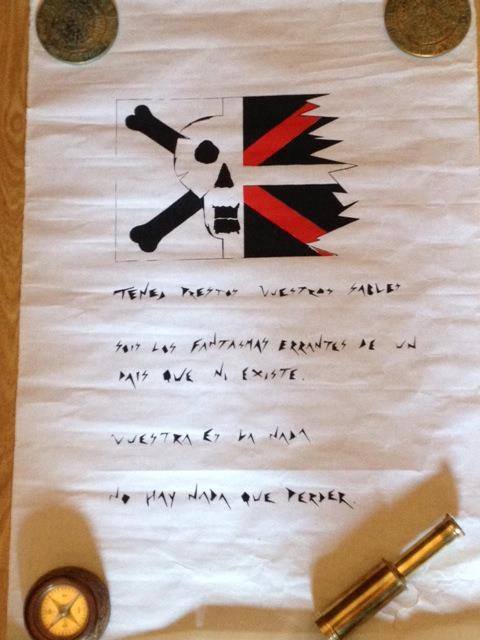 TENED PRESTOS VUESTROS SABLES
SOIS LOS FANTASMAS ERRANTES DE UN
PAIS QUE NI EXISTE.
VUESTRA ES LA NADA
NO HAY NADA QUE PERDER.